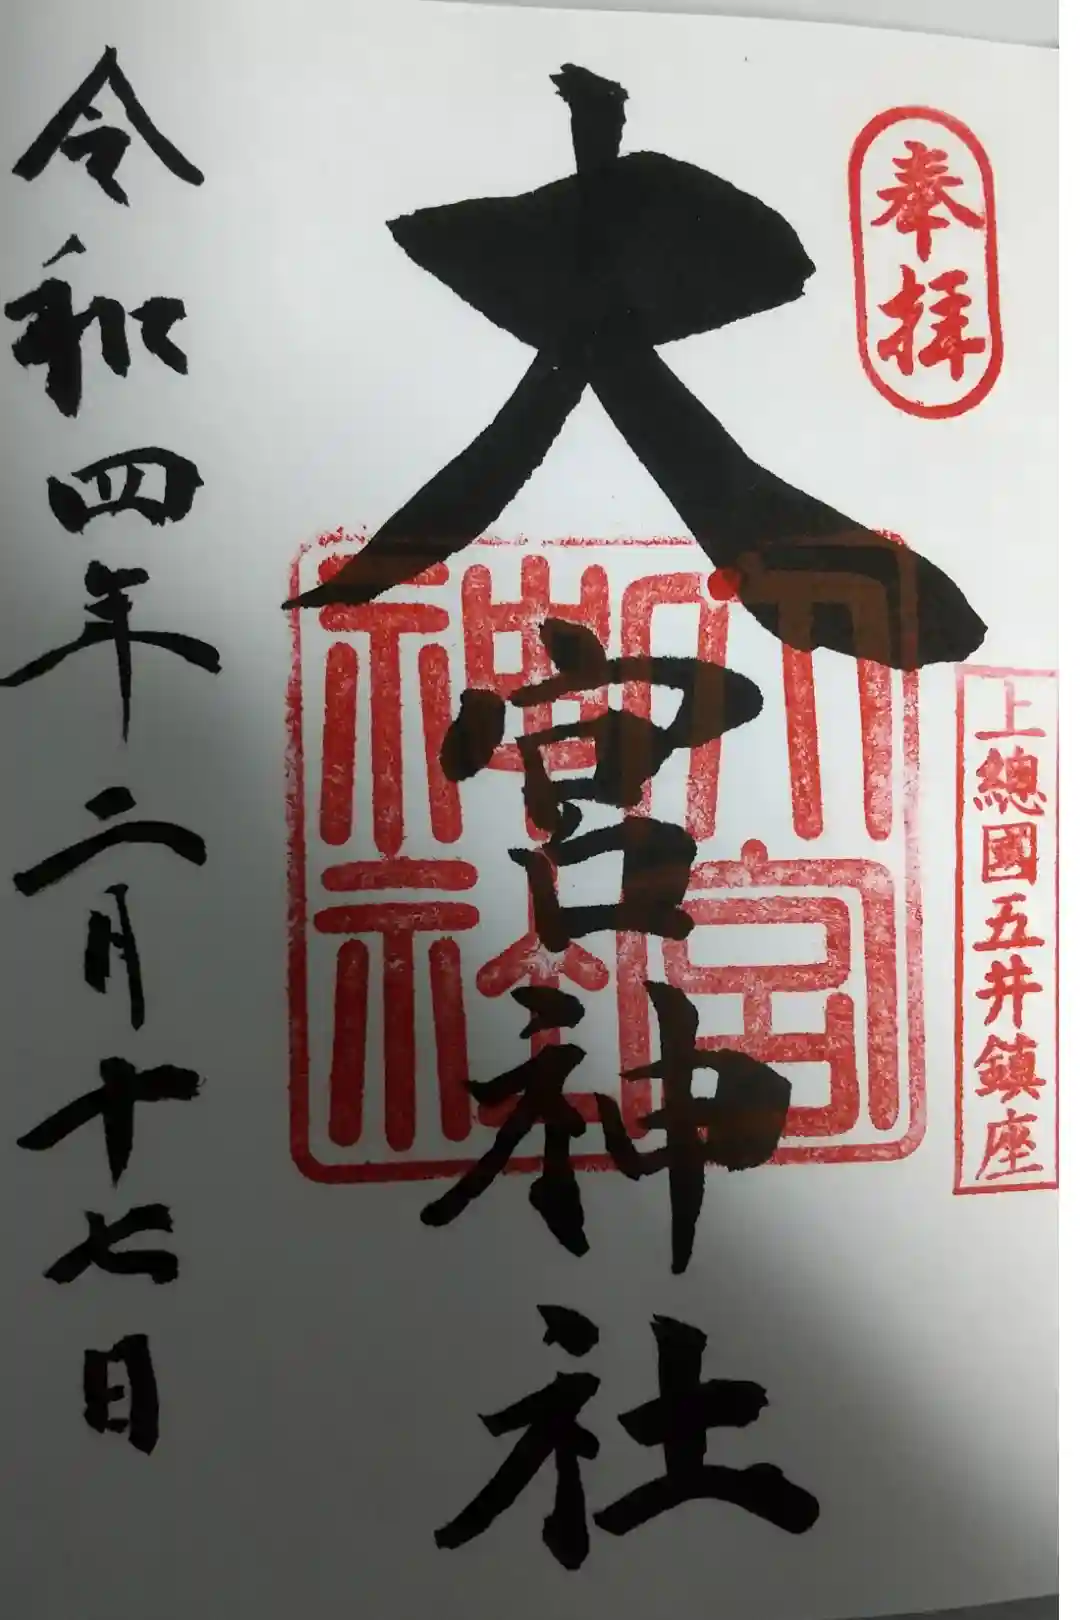 奉拝
上總國五井鎮座
大宮神社
大宮神社
令和四年二月十七日